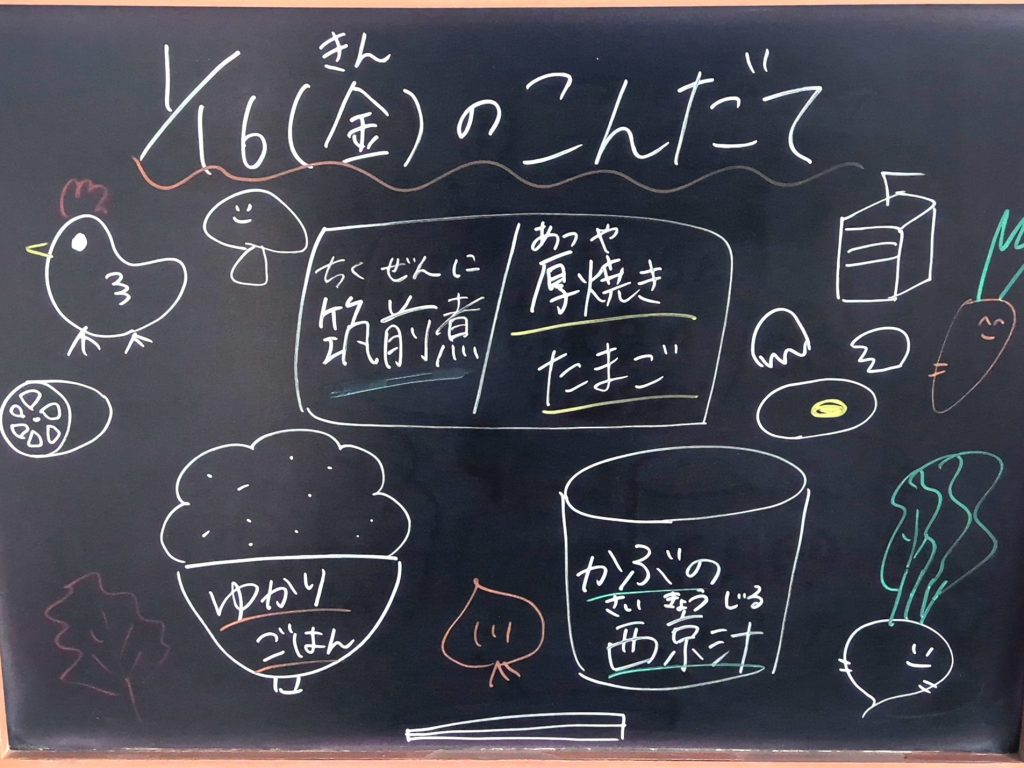 きん
1/16(金)のこんだて
ちくぜんに
筑前煮
あつや
厚焼き
たまご
ゆかり
ごはん
かぶの
さいきょうじる
西京汁